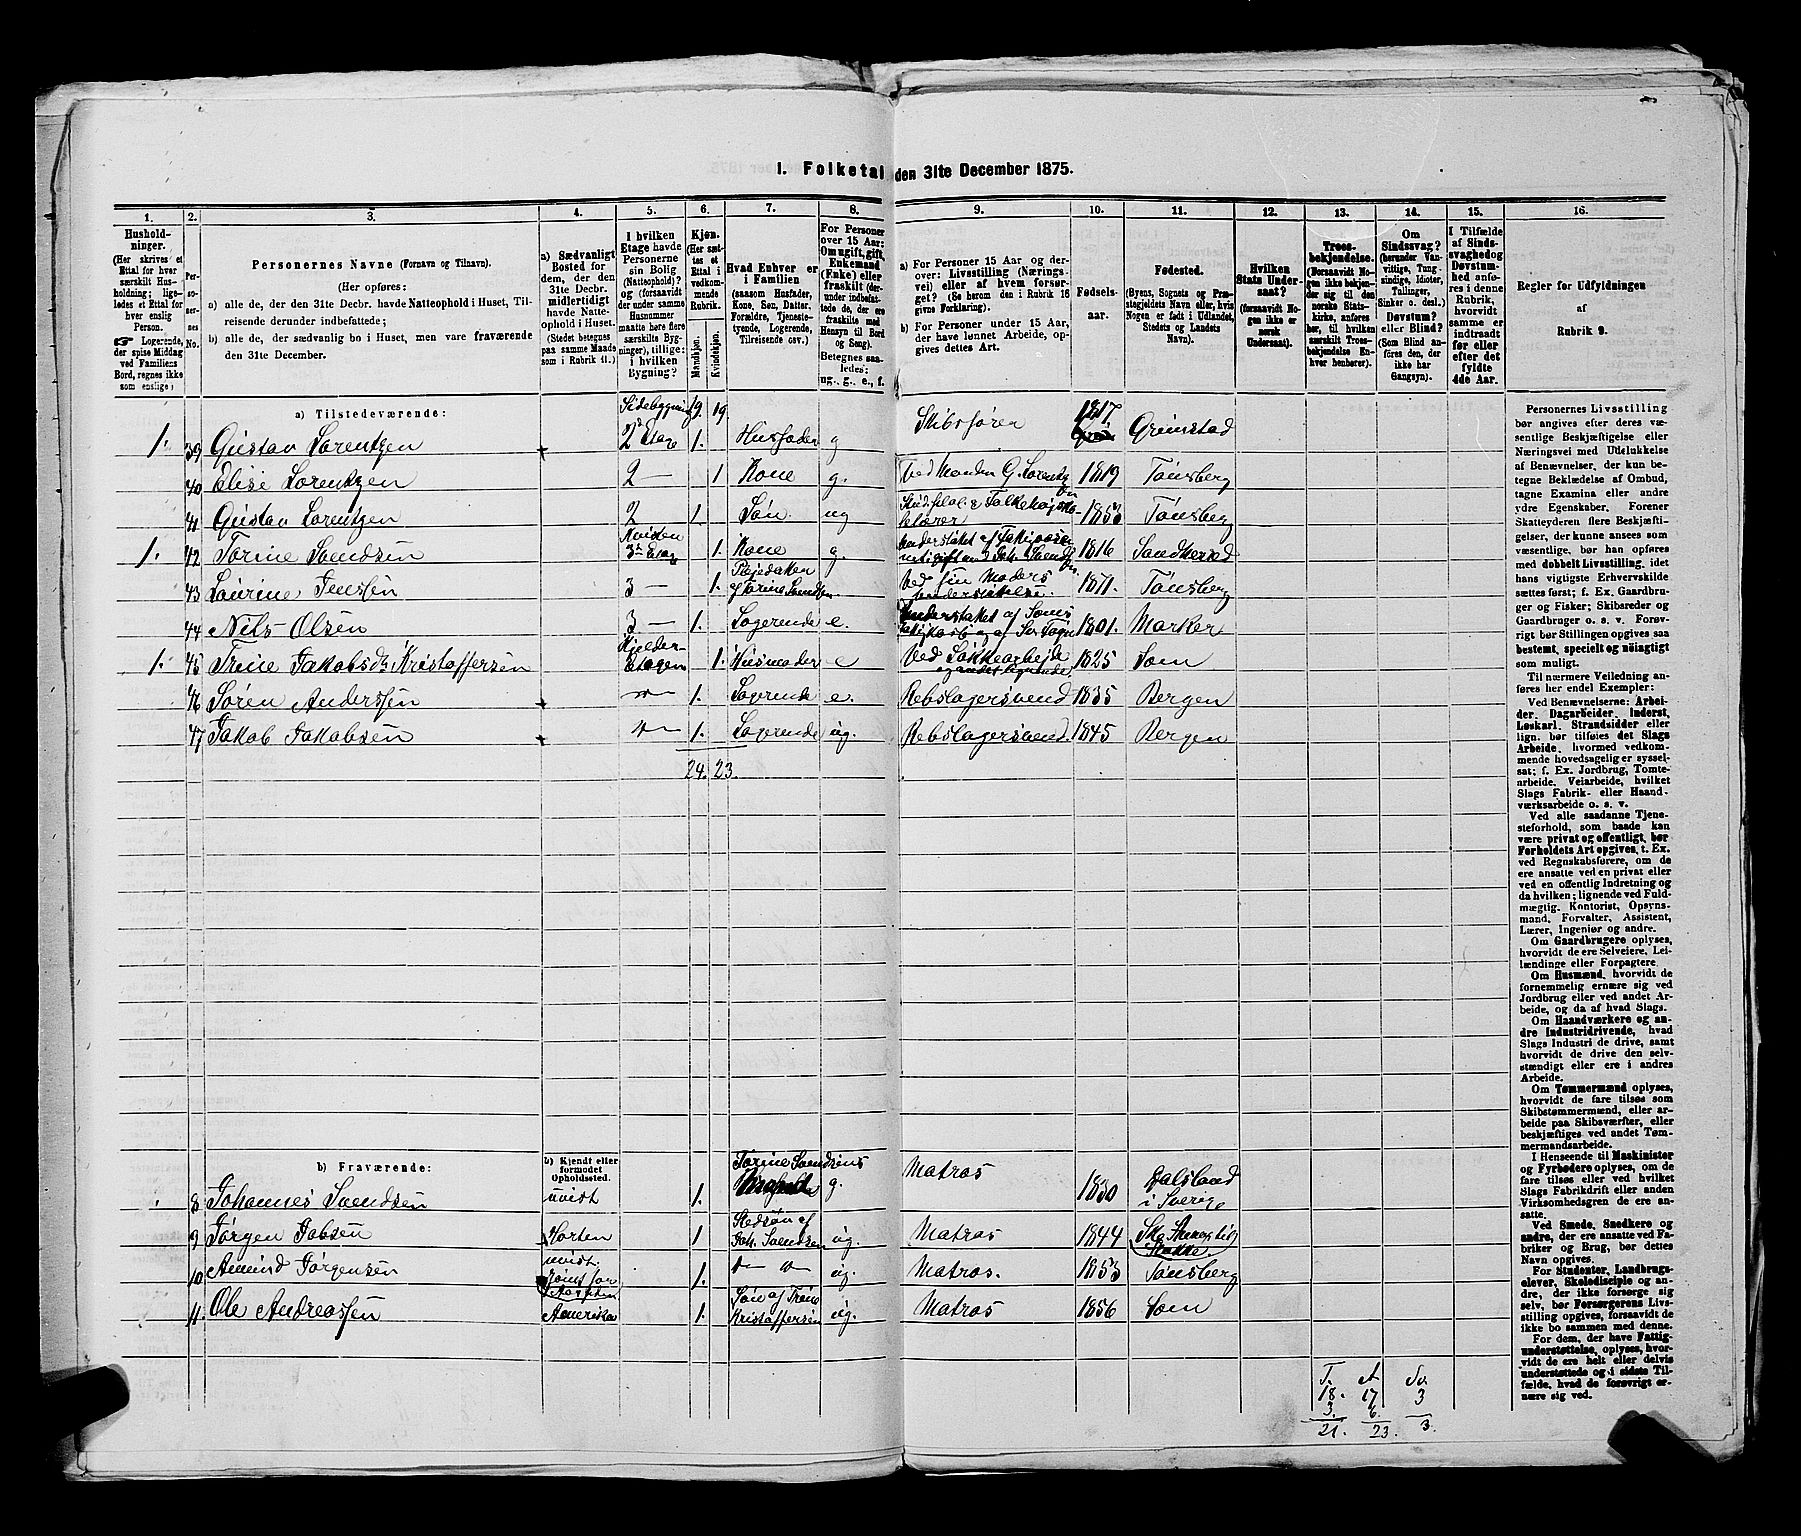 1. Folketal den 31te December 1875.
1. 2. 3. 4. 5. 6. 7. 8. 9. 10. 11. 12. 13. 14. 15. 16.
Husholdninger.
(Her skrives et Ettal for hver særskilt Husholdning; ligeledes et Ettal for hver enslig Person.
☞ Logerende, der spise Middag ved Familiens Bord, regnes ikke som enslige;
Personernes No.
Personernes Navne (Fornavn og Tilnavn).
(Her opføres:
a) alle de, der den 31te Decbr. havde Natteophold i Huset, Tilreisende derunder indbefattede;
b) alle de, der sædvanlig bo i Huset, men vare fraværende den 31te December.
a) Sædvanligt Bosted for dem, der den 31te Decbr. midlertidigt havde Natteophold i Huset. (Stedet betegnes paa samme Maade som i Rubrik 11.)
I hvilken Etage havde Personerne sin Bolig (Natteophold)? og (forsaavidt der under samme Husnummer maatte høre flere særskilte Bygninger), tillige: i hvilken Bygning?
Kjøn.
(Her sættes et Ettal i vedkommende Rubrik.
Mandkjøn.
Kvindekjøn.
Hvad Enhver er i Familien
(saasom Husfader, Kone, Søn, Datter, Forældre, Tjenestetyende, Logerende, Tilreisende osv.)
For Personer over 15 Aar: Om ugift, gift, Enkemand (Enke) eller fraskilt (derunder indbefattede de, der ere fraskilte med Hensyn til Bord og Seng).
Betegnes saaledes: ug., g., e., f.
a) For Personer 15 Aar og derover: Livsstilling (Næringsvei) eller af hvem forsørget? (Se herom den i Rubrik 16 givne Forklaring).
b) For Personer under 15 Aar, der have lønnet Arbeide, opgives dettes Art.
Fødselsaar.
Fødested.
(Byens, Sognets og Præstegjeldets Navn eller, hvis Nogen er født i Udlandet, Stedets og Landets Navn).
Hvilken Stats Undersaat?
(forsaavidt Nogen ikke er norsk Undersaat).
Troesbekjendelse.
(Forsaavidt Nogen ikke bekjender sig til den norske Statskirke, anføres her, til hvilken særskilt Troesbekjendelse Enhver henhører).
Om Sindssvag? (herunder Vanvittige, Idioter, Tullinger, Sinker o. desl.) Døvstum? eller Blind? (Som Blind anføres den, der ikke har Gangsyn).
I Tilfælde af Sindssvaghed og Døvstumhed anføres i denne Rubrik, hvorvidt samme er indtraadt før eller efter det fyldte 4de Aar.
Regler for Udfyldningen af Rubrik 9.
a) Tilstedeværende: Sidebygning 19. 19.
1. 39 Gustav Lorentzen 2 Etage 1. Husfader g Skibsfører 1817. Grimstad
40 Elise Lorentzen 2 — 1 Kone g. Ved Manden G. Lorentzen 1819 Tønsberg
41 Gustav Lorentzen 2 1 Søn ug Stud. filol. & Folkehøjsko-lelærer 1853 Tønsberg
1. 42 Torine Svendsen Kvisten 3die Etage 1. Kone g. Understøttet af 1816 Sandherred
43 Laurine Jenssen 3 — 1. Plejedatter af Torine Svendsen. Ved sin Moders Understøttelse. 1871. Tønsberg
44 Nils Olsen 3 — 1. Logerende e. Understøttet af 1801. Marker
1. 45 Trine Jakobsd. Kristoffersen Kjelder Etagen 1. Husmoder e Ved 1825 Søm
46 Søren Anderssen —"— 1. Logerende e. Rebslagersvend 1835 Bergen
47 Jakob Jakobsen —"— 1. Logerende ug. Rebslagersvend. 1845 Bergen
24. 23.
b) Fraværende:
b) Kjendt eller formodet Opholdssted.
8 Johannes Svendsen uvist 1. Torine Svendsens g. Matros 1830 Dalsland i Sverige
9 Jørgen Jobsen Horten 1 Stedsøn af Joh. Svendsen ug. Matros 1844 Stokke.
10 Amund Jørgensen uvist. 1. —"— —"— ug. Matros. 1853 Tønsberg
11. Ole Andreassen Amerika 1. Søn af Trine Kristoffersen ug. Matros 1856 Søm
T. A Sv.
18. 17 3
3. 6.
21. 23. 3.
Personernes Livsstilling bør angives efter deres væsentlige Beskjæftigelse eller Næringsvei med Udelukkelse af Benævnelser, der kun betegne Beklædelse af Ombud, tagne Examina eller andre ydre Egenskaber. Forener Skatteyderen flere Beskjæftigelser, der kunne ansees som væsentlige, bør han opføres med dobbelt Livsstilling, idet hans vigtigste Erhvervskilde sættes først; f. Ex. Gaardbruger og Fisker; Skibsreder og Gaardbruger o. s. v. Forøvrigt bør Stillingen opgives saa bestemt, specielt og nøiagtigt som muligt.
Til nærmere Veiledning anføres her endel Exempler:
Ved Benævnelserne: Arbeider, Dagarbeider, Inderst, Løskarl, Strandsidder eller lign. bør tilføies det Slags Arbeide, hvormed vedkommende hovedsagelig er sysselsat; f. Ex. Jordbrug, Tomtearbeide, Veiarbeide, hvilket Slags Fabrik- eller Haandværksarbeide o. s. v.
Ved alle saadanne Tjenesteforhold, som baade kan være privat og offentligt, bør Forholdets Art opgives, t. Ex. ved Regnskabsførere, om de ere ansatte ved en privat eller ved en offentlig Indretning og da hvilken; lignende ved Fuldmægtig, Kontorist, Opsynsmand, Forvalter, Assistent, Lærer, Ingeniør og andre.
Om Gaardbrugere oplyses, hvorvidt de ere Selveiere, Leilændinge eller Forpagtere.
Om Husmænd, hvorvidt de fornemmelig ernære sig ved Jordbrug eller ved andet Arbeide, og da af hvad Slags.
Om Haandværkere og andre Industridrivende, hvad Slags Industri de drive, samt hvorvidt de drive den selvstændigt eller ere i andres Arbeide.
Om Tømmermænd oplyses, hvorvidt de fare tilsøs som Skibstømmermænd, eller arbeide paa Skibsværfter, eller beskjæftiges ved andet Tømmermandsarbeide.
I Henseende til Maskinister og Fyrbødere oplyses, om de fare tilsøs eller ved hvilket Slags Fabrikdrift eller anden Virksomhedsgren de ere ansatte.
Ved Smede, Snedkere og andre, der ere ansatte ved Fabriker og Brug, bør dettes Navn opgives.
For Studenter, Landbrugselever, Skoledisciple og andre, der ikke forsørge sig selv, bør Forsørgerens Livsstilling opgives, forsaavidt de ikke bo sammen med denne.
For dem, der have Fattigunderstøttelse, oplyses, hvorvidt de ere helt eller delvis understøttede og i sidste Tilfælde, hvad de forøvrigt ernære sig ved.